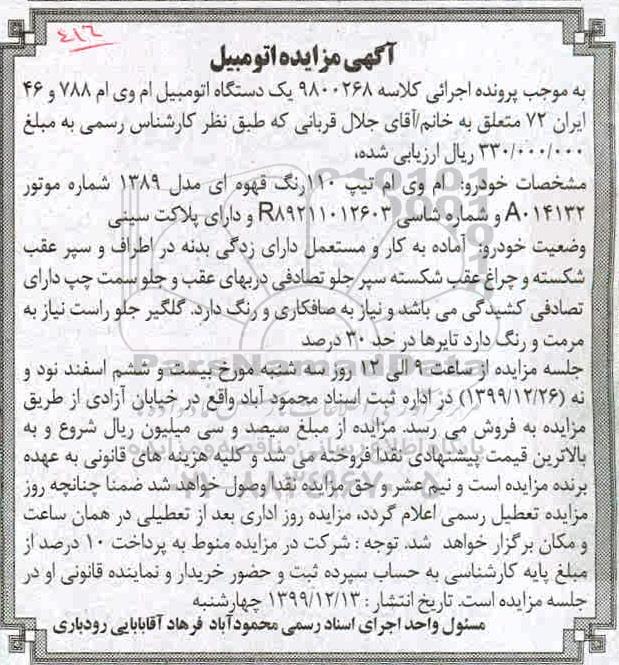 ۴۱۶
آگهی مزایده اتومبیل
به موجب پرونده اجرائی کلاسه ۹۸۰۰۲۶۸ یک دستگاه اتومبیل ام وی ام ۷۸۸ و ۴۶
ایران ۷۲ متعلق به خانم/آقای جلال قربانی که طبق نظر کارشناس رسمی به مبلغ
۳۳۰/۰۰۰/۰۰۰ ریال ارزیابی شده،
مشخصات خودرو: ام وی ام تیپ ۱۱۰ رنگ قهوه ای مدل ۱۳۸۹ شماره موتور
A۰۱۴۱۳۲ و شماره شاسی R۸۹۲۱۱۰۱۲۶۰۳ و دارای پلاکت سینی
وضعیت خودرو: آماده به کار و مستعمل دارای زدگی بدنه در اطراف و سپر عقب
شکسته و چراغ عقب شکسته سپر جلو تصادفی دربهای عقب و جلو سمت چپ دارای
تصادفی کشیدگی می باشد و نیاز به صافکاری و رنگ دارد. گلگیر جلو راست نیاز به
مرمت و رنگ دارد تایرها در حد ۳۰ درصد
جلسه مزایده از ساعت ۹ الی ۱۲ روز سه شنبه مورخ بیست و ششم اسفند نود و
نه (۱۳۹۹/۱۲/۲۶) در اداره ثبت اسناد محمود آباد واقع در خیابان آزادی از طریق
مزایده به فروش می رسد. مزایده از مبلغ سیصد و سی میلیون ریال شروع و به
بالاترین قیمت پیشنهادی نقدا فروخته می شد و کلیه هزینه های قانونی به عهده
برنده مزایده است و نیم عشر و حق مزایده نقدا وصول خواهد شد ضمنا چنانچه روز
مزایده تعطیل رسمی اعلام گردد، مزایده روز اداری بعد از تعطیلی در همان ساعت
و مکان برگزار خواهد شد. توجه : شرکت در مزایده منوط به پرداخت ۱۰ درصد از
مبلغ پایه کارشناسی به حساب سپرده ثبت و حضور خریدار و نماینده قانونی او در
جلسه مزایده است. تاریخ انتشار : ۱۳۹۹/۱۲/۱۳ چهارشنبه
مسئول واحد اجرای اسناد رسمی محمودآباد فرهاد آقابابایی رودباری
ParsNamadData